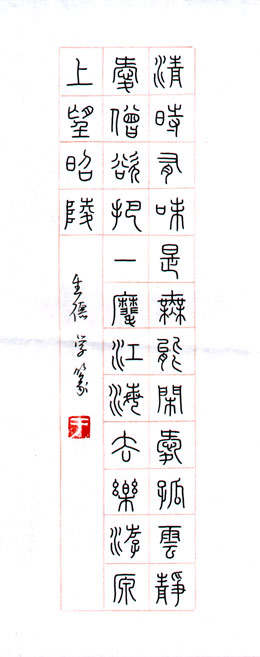 清時有味是無能閑愛孤雲靜
愛僧欲把一麾江海去樂游原
上望昭陵
学篆